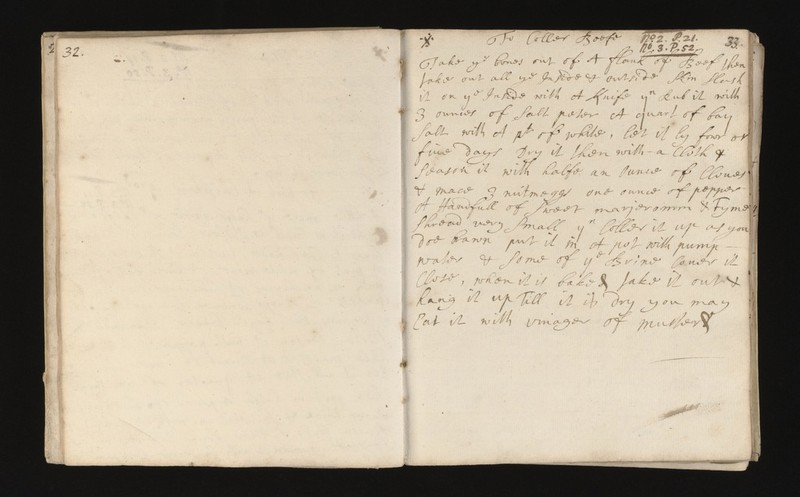 32.
To Coller Beefe No 2. P. 21. 33
No. 3. P. 52.
Take ye bones out of A flank of Beef then
take out all ye Inside & outside Skin Slash
it on ye Inside with A Knife yn Rub it with
3 ounces of Salt peter A quart of bay
Salt with A pt of white, let it ly four or
five days Dry it then with a Cloth &
Season it with halfe an ounce of Cloves
& mace 3 nutmeggs one ounce of pepper
A Handfull of Sweet marjeromm & Tyme
Shread very Small yn Coller it up as you
doe brawn put it in A pot with pump
water & Some of ye Brine Cover it
Close, when it is baked take it out &
hang it up Till it is Dry you may
Eat it with vinager or musterd